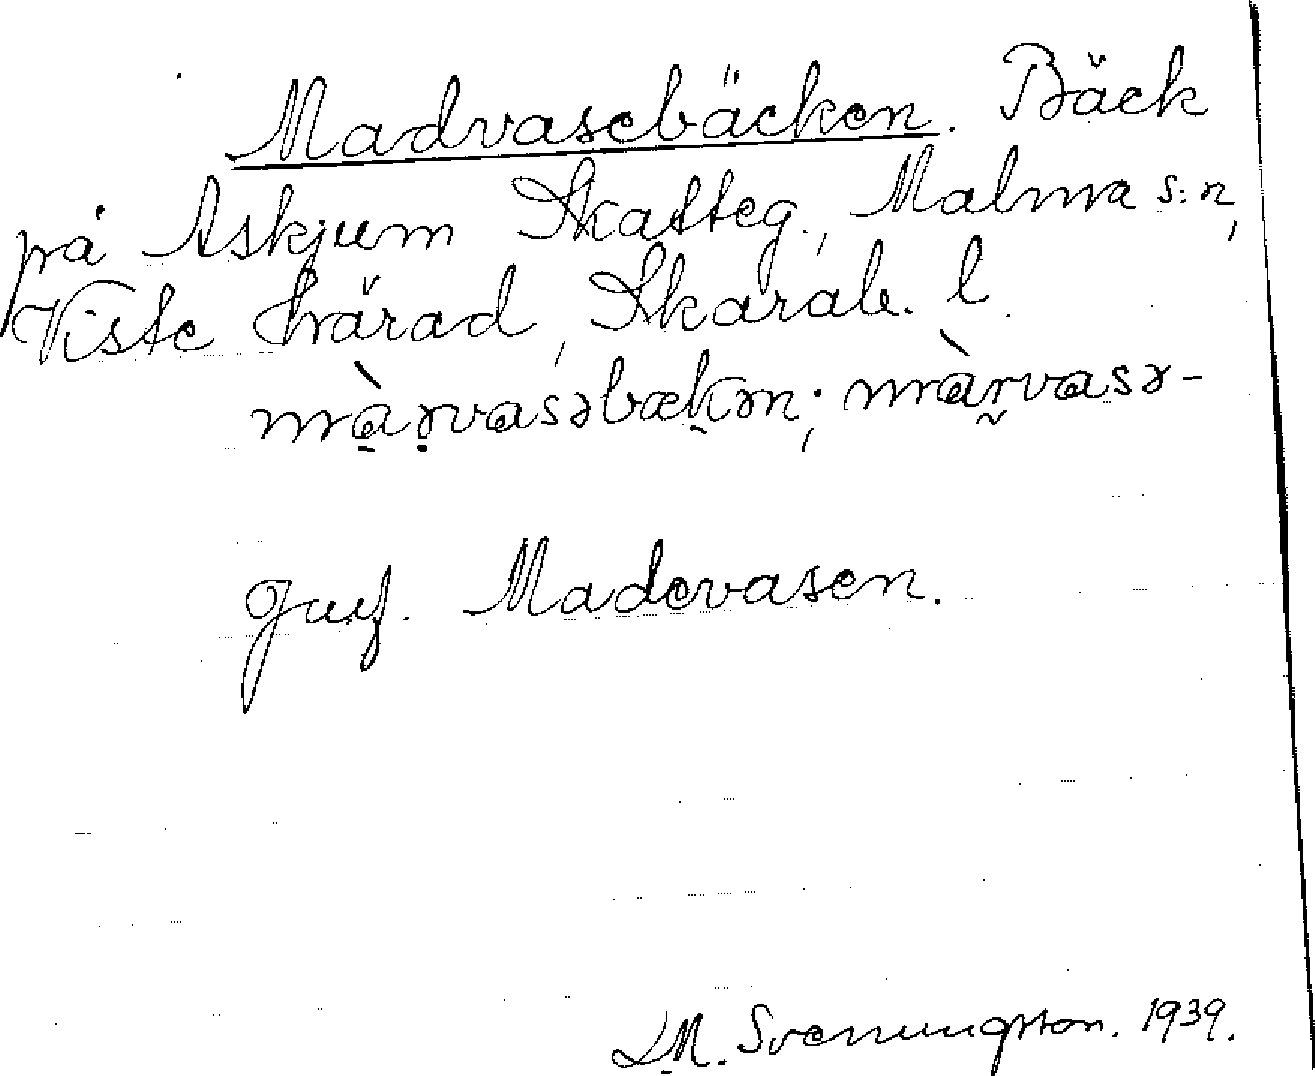 Madvasebäcken. Bäck
på Askjum Skatteg., Malma s:n,
Viste härad, Skarab. l.
màrvasəbækən; màrvasə-
Jmf. Madevasen.
M. Svenungsson. 1939.